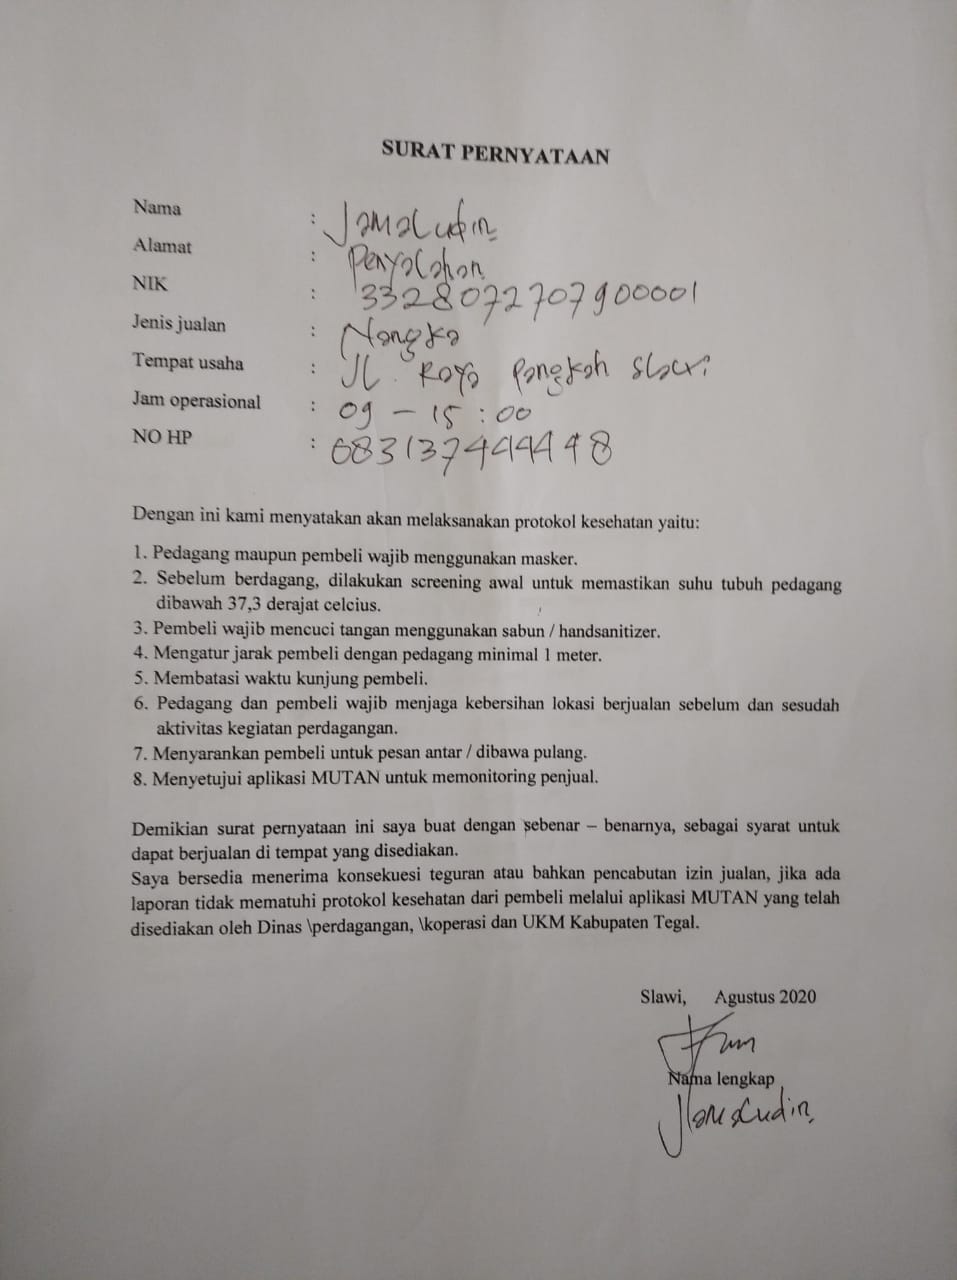 SURAT PERNYATAAN
Nama : Jamaludin
Alamat : Penyalahan
NIK : 3328072707900001
Jenis jualan : Nangka
Tempat usaha : JL. Raya Pangkah Slawi
Jam operasional : 09 – 15 : 00
NO HP :
Dengan ini kami menyatakan akan melaksanakan protokol kesehatan yaitu:
1. Pedagang maupun pembeli wajib menggunakan masker.
2. Sebelum berdagang, dilakukan screening awal untuk memastikan suhu tubuh pedagang
dibawah 37,3 derajat celcius.
3. Pembeli wajib mencuci tangan menggunakan sabun / handsanitizer.
4. Mengatur jarak pembeli dengan pedagang minimal 1 meter.
5. Membatasi waktu kunjung pembeli.
6. Pedagang dan pembeli wajib menjaga kebersihan lokasi berjualan sebelum dan sesudah
aktivitas kegiatan perdagangan.
7. Menyarankan pembeli untuk pesan antar / dibawa pulang.
8. Menyetujui aplikasi MUTAN untuk memonitoring penjual.
Demikian surat pernyataan ini saya buat dengan sebenar – benarnya, sebagai syarat untuk
dapat berjualan di tempat yang disediakan.
Saya bersedia menerima konsekuesi teguran atau bahkan pencabutan izin jualan, jika ada
laporan tidak mematuhi protokol kesehatan dari pembeli melalui aplikasi MUTAN yang telah
disediakan oleh Dinas \perdagangan, \koperasi dan UKM Kabupaten Tegal.
Slawi, Agustus 2020
Nama lengkap
Jamaludin